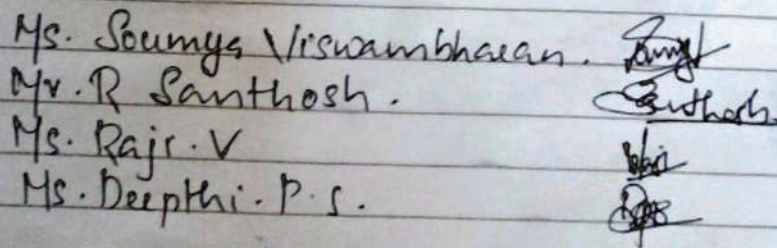 Ms. Soumya Viswambharan.
Mr. R Santhosh. Santhosh
Ms. Raji. V
Ms. Deepthi. P. S.